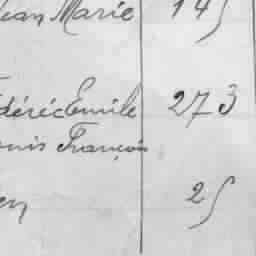 Jean Marie 145
Frédéric Emile 273
Louis François
25